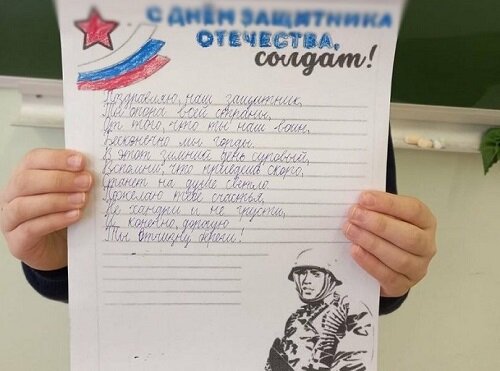 С ДНЁМ ЗАЩИТНИКА
ОТЕЧЕСТВА,
солдат!
Поздравляю, наш защитник,
Ты опора всей страны,
От того, что ты наш воин,
Бесконечно мы горды.
В этот зимний день суровый,
Вспомни, что придёшь скоро,
Станет на душе светло.
Пожелаю тебе счастья,
Не хандри и не грусти,
И, конечно, дорогую
Ты Отчизну береги!